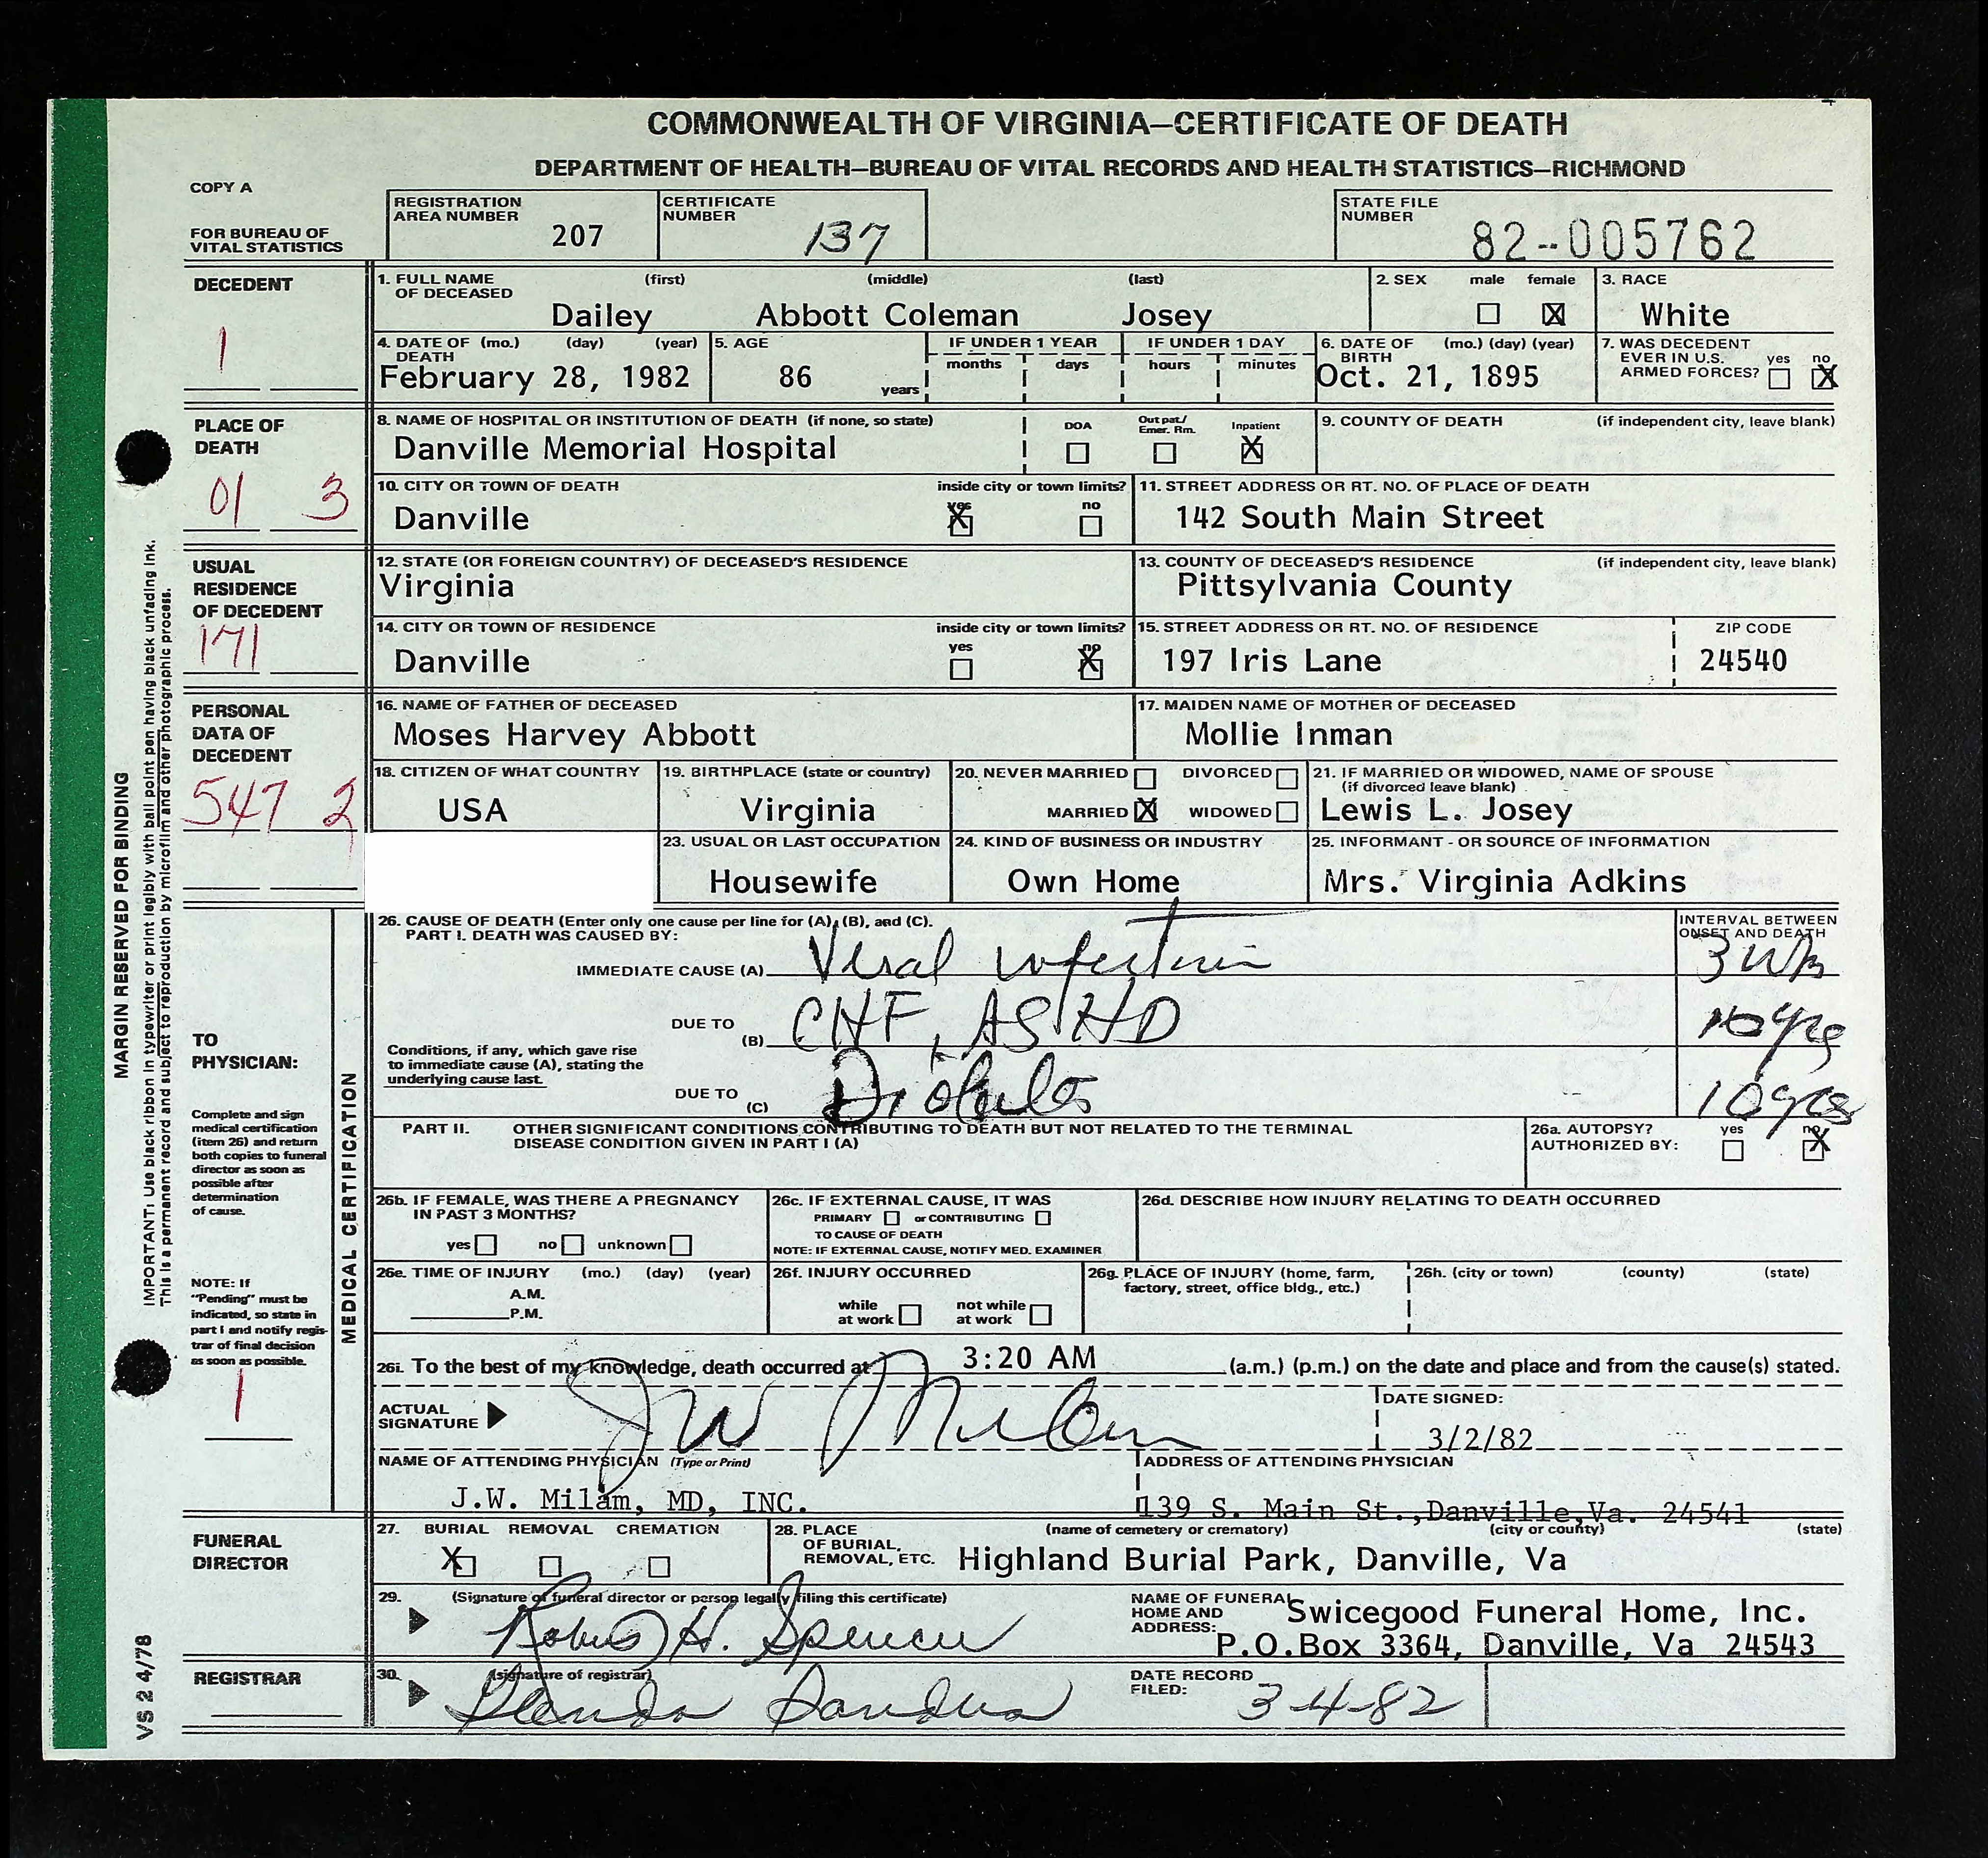 COMMONWEALTH OF VIRGINIA—CERTIFICATE OF DEATH
DEPARTMENT OF HEALTH—BUREAU OF VITAL RECORDS AND HEALTH STATISTICS—RICHMOND
COPY A
FOR BUREAU OF
VITAL STATISTICS
REGISTRATION
AREA NUMBER
207
CERTIFICATE
NUMBER
137
STATE FILE
NUMBER
82--005762
DECEDENT
1
1. FULL NAME (first) (middle) (last)
OF DECEASED
Dailey Abbott Coleman Josey
2. SEX male female
X
3. RACE
White
4. DATE OF (mo.) (day) (year)
DEATH
February 28, 1982
5. AGE
86 years
IF UNDER 1 YEAR
months days
IF UNDER 1 DAY
hours minutes
6. DATE OF (mo.) (day) (year)
BIRTH
Oct. 21, 1895
7. WAS DECEDENT
EVER IN U.S. yes no
ARMED FORCES? X
PLACE OF
DEATH
01 3
8. NAME OF HOSPITAL OR INSTITUTION OF DEATH (if none, so state)
Danville Memorial Hospital
DOA
Out pat./
Emer. Rm.
Inpatient
X
9. COUNTY OF DEATH (if independent city, leave blank)
10. CITY OR TOWN OF DEATH inside city or town limits?
yes no
Danville X
11. STREET ADDRESS OR RT. NO. OF PLACE OF DEATH
142 South Main Street
USUAL
RESIDENCE
OF DECEDENT
171
12. STATE (OR FOREIGN COUNTRY) OF DECEASED'S RESIDENCE
Virginia
13. COUNTY OF DECEASED'S RESIDENCE (if independent city, leave blank)
Pittsylvania County
14. CITY OR TOWN OF RESIDENCE inside city or town limits?
yes no
Danville X
15. STREET ADDRESS OR RT. NO. OF RESIDENCE ZIP CODE
197 Iris Lane 24540
PERSONAL
DATA OF
DECEDENT
547 2
16. NAME OF FATHER OF DECEASED
Moses Harvey Abbott
17. MAIDEN NAME OF MOTHER OF DECEASED
Mollie Inman
18. CITIZEN OF WHAT COUNTRY
USA
19. BIRTHPLACE (state or country)
Virginia
20. NEVER MARRIED DIVORCED
MARRIED X WIDOWED
21. IF MARRIED OR WIDOWED, NAME OF SPOUSE
(if divorced leave blank)
Lewis L. Josey
23. USUAL OR LAST OCCUPATION
Housewife
24. KIND OF BUSINESS OR INDUSTRY
Own Home
25. INFORMANT - OR SOURCE OF INFORMATION
Mrs. Virginia Adkins
MARGIN RESERVED FOR BINDING
IMPORTANT: Use black ribbon in typewriter or print legibly with ball point pen having black unfading ink.
This is a permanent record and subject to reproduction by microfilm and other photographic process.
VS 2 4/78
TO
PHYSICIAN:
Complete and sign
medical certification
(item 26) and return
both copies to funeral
director as soon as
possible after
determination
of cause.
NOTE: If
"Pending" must be
indicated, so state in
part I and notify regis-
trar of final decision
as soon as possible.
1
MEDICAL CERTIFICATION
26. CAUSE OF DEATH (Enter only one cause per line for (A), (B), and (C).
PART I. DEATH WAS CAUSED BY:
INTERVAL BETWEEN
ONSET AND DEATH
IMMEDIATE CAUSE (A) Viral infection 3 wk
DUE TO
(B) CHF, ASHD 10 yrs
Conditions, if any, which gave rise
to immediate cause (A), stating the
underlying cause last.
DUE TO
(C) Diabetes 10 yrs
PART II. OTHER SIGNIFICANT CONDITIONS CONTRIBUTING TO DEATH BUT NOT RELATED TO THE TERMINAL
DISEASE CONDITION GIVEN IN PART I (A)
26a. AUTOPSY? yes no
AUTHORIZED BY: X
26b. IF FEMALE, WAS THERE A PREGNANCY
IN PAST 3 MONTHS?
yes no unknown
26c. IF EXTERNAL CAUSE, IT WAS
PRIMARY or CONTRIBUTING
TO CAUSE OF DEATH
NOTE: IF EXTERNAL CAUSE, NOTIFY MED. EXAMINER
26d. DESCRIBE HOW INJURY RELATING TO DEATH OCCURRED
26e. TIME OF INJURY (mo.) (day) (year)
A.M.
P.M.
26f. INJURY OCCURRED
while not while
at work at work
26g. PLACE OF INJURY (home, farm,
factory, street, office bldg., etc.)
26h. (city or town) (county) (state)
26i. To the best of my knowledge, death occurred at 3:20 AM (a.m.) (p.m.) on the date and place and from the cause(s) stated.
ACTUAL
SIGNATURE
J W Milam
DATE SIGNED:
3/2/82
NAME OF ATTENDING PHYSICIAN (Type or Print)
J.W. Milam, MD, INC.
ADDRESS OF ATTENDING PHYSICIAN
139 S. Main St.,Danville,Va. 24541
FUNERAL
DIRECTOR
27. BURIAL REMOVAL CREMATION
X
28. PLACE (name of cemetery or crematory) (city or county) (state)
OF BURIAL,
REMOVAL, ETC.
Highland Burial Park, Danville, Va
29. (Signature of funeral director or person legally filing this certificate)
Robert H. Spencer
NAME OF FUNERAL
HOME AND
ADDRESS:
Swicegood Funeral Home, Inc.
P.O.Box 3364, Danville, Va 24543
REGISTRAR
30. (signature of registrar)
DATE RECORD
FILED:
3-4-82